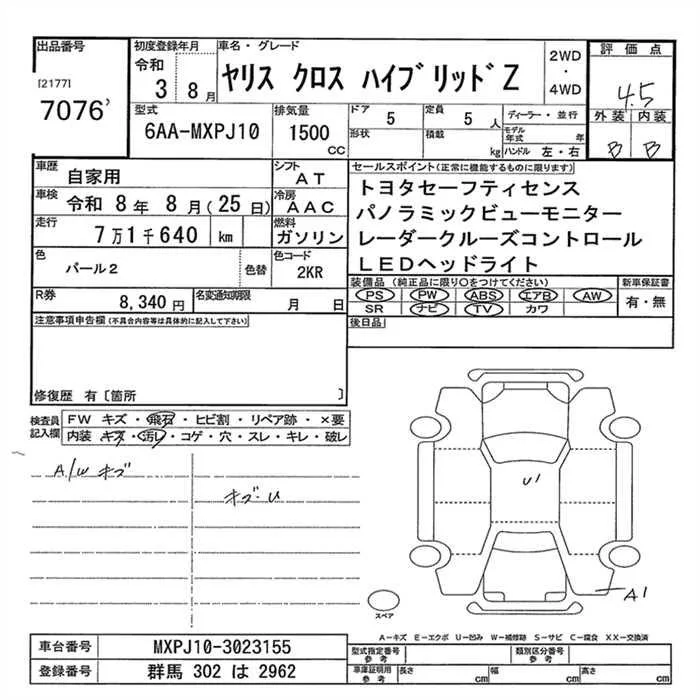 出品番号
[2177]
7076
初度登録年月
令和
3 8月
車名・グレード
ヤリス クロス ハイブリッドZ
2WD
・
4WD
評価点
4.5
外装 内装
B B
型式
6AA-MXPJ10
排気量
1500
CC
ドア
5
定員
5 人
形状
積載
kg
ディーラー・並行
モデル年式 年
ハンドル 左・右
車歴
自家用
シフト
AT
車検
令和 8年 8月(25日)
冷房
AAC
走行
7万1千640 km
燃料
ガソリン
色
パール2
色替
色コード
2KR
R券
8,340円
名変通知期限
月 日
セールスポイント(正常に機能するものに限ります)
トヨタセーフティセンス
パノラミックビューモニター
レーダークルーズコントロール
LEDヘッドライト
装備品(純正品に限り○をつけてください)
PS PW ABS エアB AW
SR ナビ TV カワ
新車保証書
有・無
後日品
注意事項申告欄(不具合内容等は具体的に記入して下さい)
修復歴 有〔箇所 〕
検査員
記入欄
FW キズ・飛石・ヒビ割・リペア跡・×要
内装 キズ・汚レ・コゲ・穴・スレ・キレ・破レ
A/W キズ
キズ・U
U1
A1
スペア
A−キズ E−エクボ U−凹み W−補修跡 S−サビ C−腐食 XX−交換済
車台番号
MXPJ10-3023155
登録番号
群馬 302 は 2962
型式指定番号
参考
類別区分番号
参考
車庫証明用
参考
長さ cm
幅 cm
高さ cm